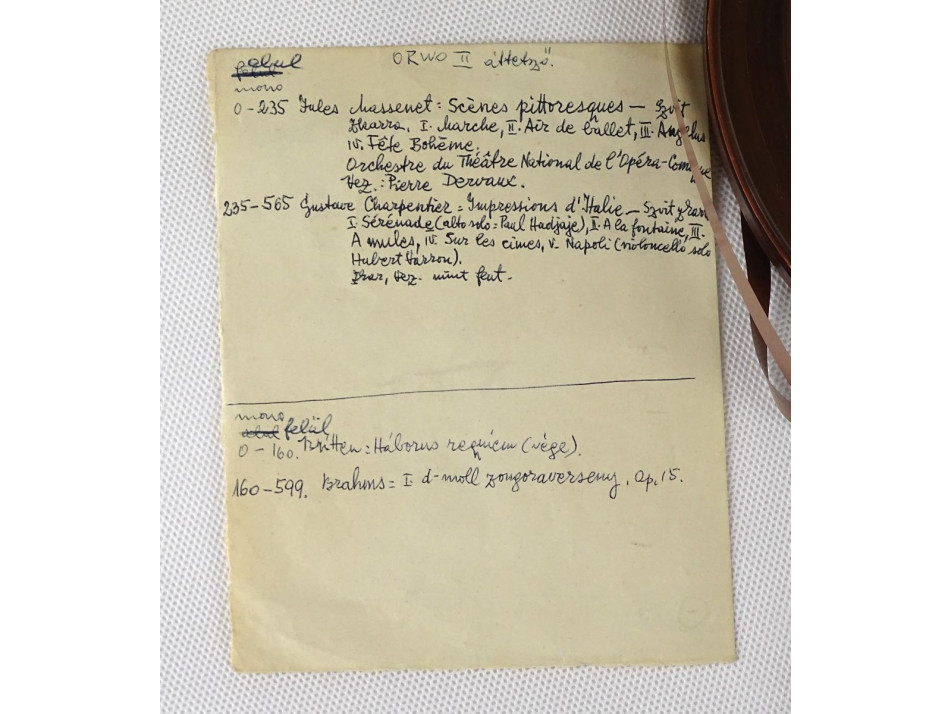 alul ORWO II áttetsző.
felül
mono
0-235 Jules Massenet: Scènes pittoresques — Szvit
Zkarra. I. Marche, II. Air de ballet, III. Angelus
IV. Fête Bohème.
Orchestre du Théâtre National de l'Opéra-Comique
Vez.: Pierre Dervaux.
235-565 Gustave Charpentier: Impressions d'Italie — Szvit zkar
I. Sérénade (alto solo: Paul Hadjaje), II. A la fontaine, III.
A mules, IV. Sur les cimes, V. Napoli (violoncello solo
Hubert Varron).
Zkar, Vez. mint fent.
mono
alul felül
0-160. Britten: Háborus requiem (vége).
160-599. Brahms: I. d-moll zongoraverseny, Op. 15.